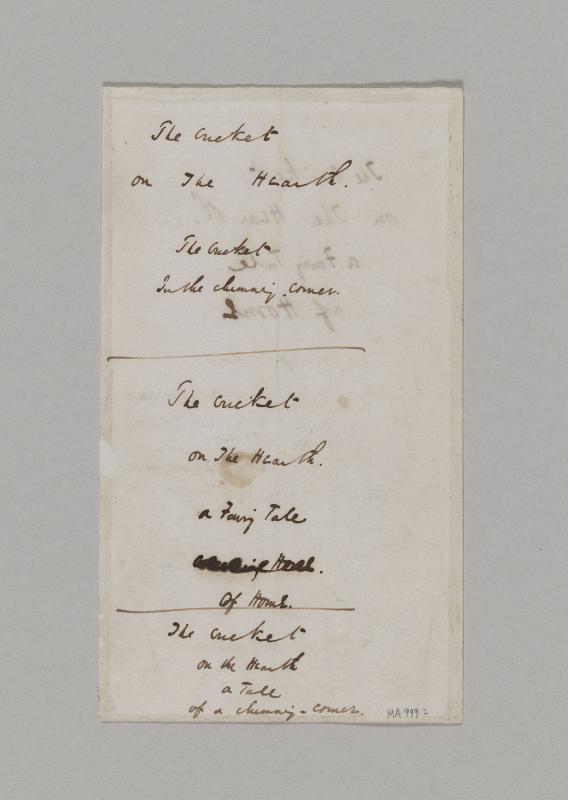 The Cricket
on The Hearth.
The Cricket
In the chimney-corner.
The Cricket
on The Hearth.
a Fairy Tale
Of Home.
The Cricket
on the Hearth
a Tale
of a chimney-corner.
MA 999.2